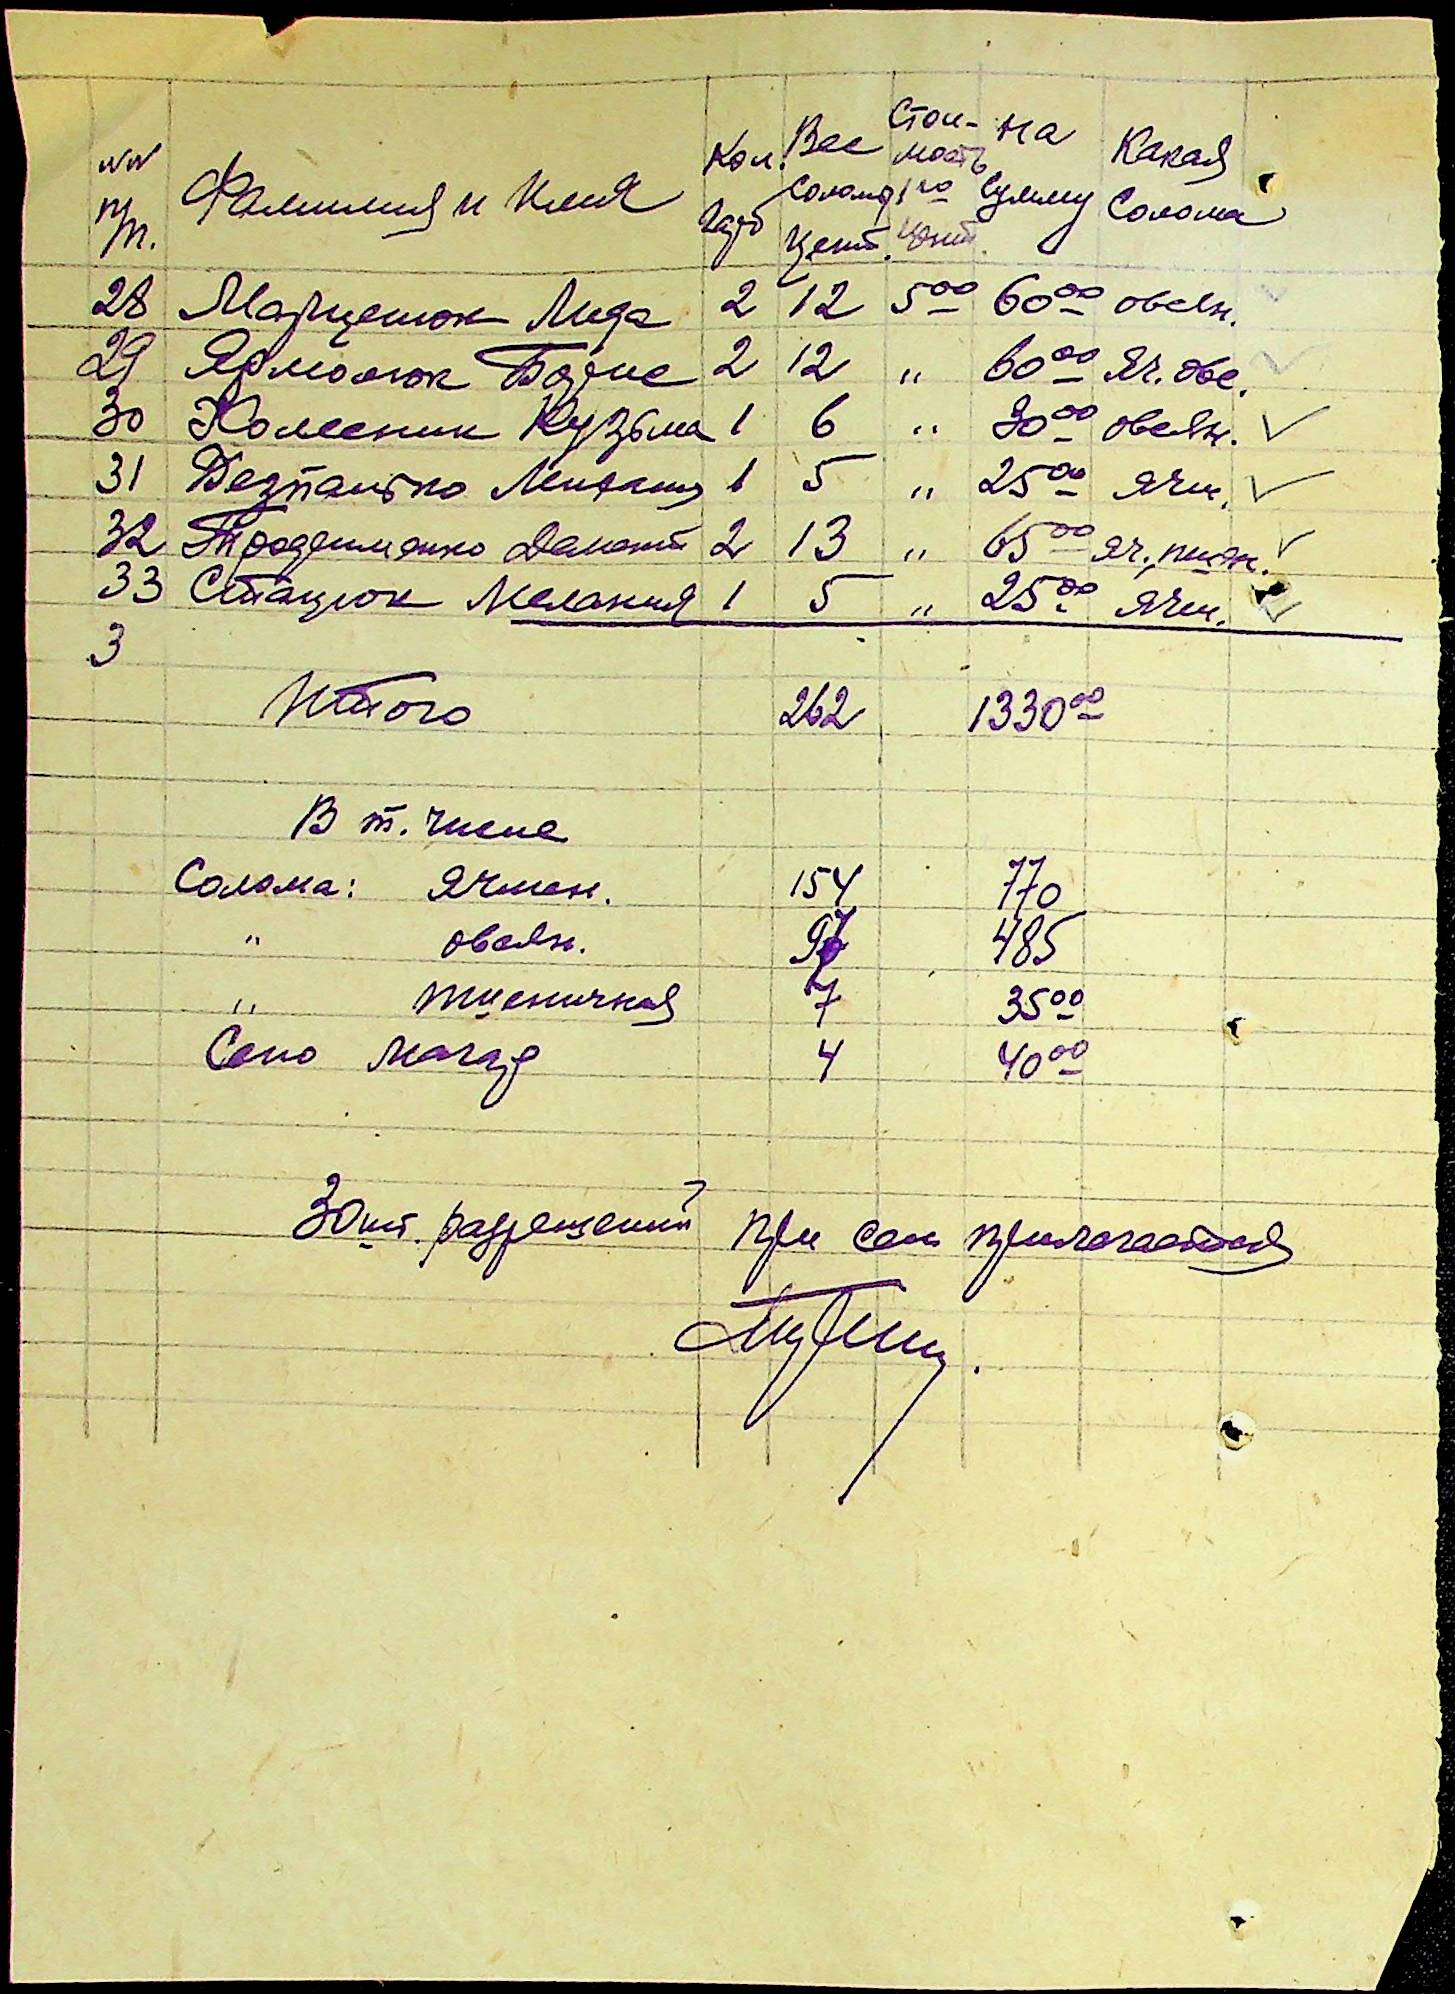 NN п/п. Фамилия и Имя Кол. Вес соломы цент. Стои-мость 1го цент. На сумму Какая солома
28 Марценюк Лида 2 12 5 00 60 00 овсян.
29 Ярмолюк Борис 2 12 " 60 00 яч. овс.
30 Колесник Кузьма 1 6 " 30 00 овсян. ✓
31 1 5 " 25 00 ячм. ✓
32 2 13 " 65 00 яч., пшен. ✓
33 Стацюк Мелания 1 5 " 25 00 ячм. ✓
3
Итого 262 1330 00
В т. числе
Солома: ячмен. 154 770
" овсян. 97 485
" пшеничная 7 35 00
Сено 4 40 00
30 шт. разрешений при сем прилагается